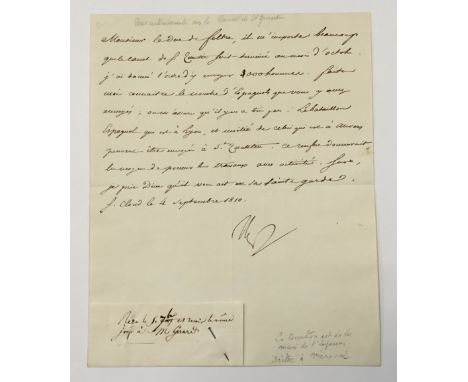 Monsieur le Duc de feltre, il m'importe beaucoup
que le canal de St Quentin soit terminé au mois d'octobre.
j'ai donné l'ordre d'y envoyer 3000 hommes. faites
moi connaitre le nombre d'Espagnols que vous y avez
envoyé; on m'assure qu'il y en a très peu. Le bataillon
Espagnol qui est à Lyon, et moitié de celui qui est à
peuvent être envoyés à St Quentin. ce renfort donnerait
le moyen de pousser les travaux avec activité. Sur ce,
je prie Dieu qu'il vous ait en sa sainte garde.
St Cloud le 4 septembre 1810.
Np
Reçu le 5 7bre et remis le même
jour à M Gérard